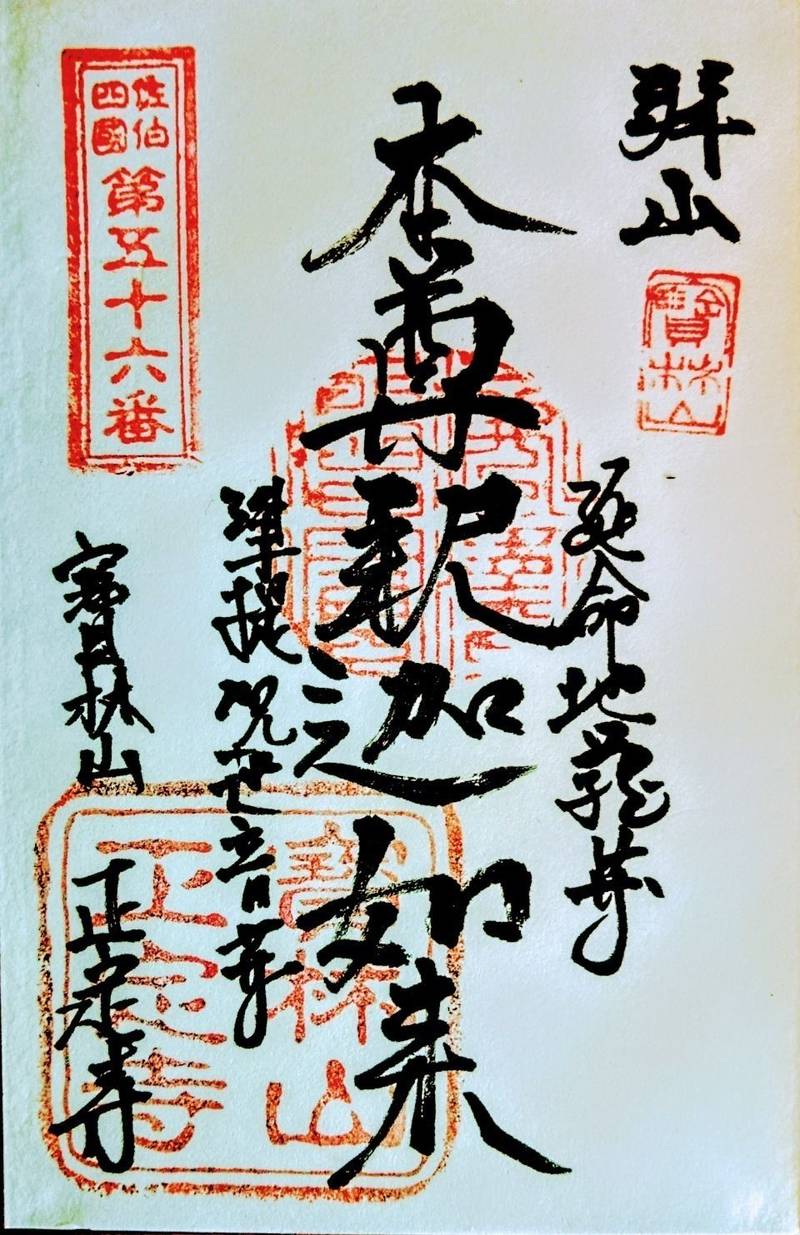 拜山
寶林山
延命地蔵𦬇
本尊釈迦如来
準提観世音𦬇
佐伯
四國
第五十六番
寶林山
正定寺
寶林山
正定寺